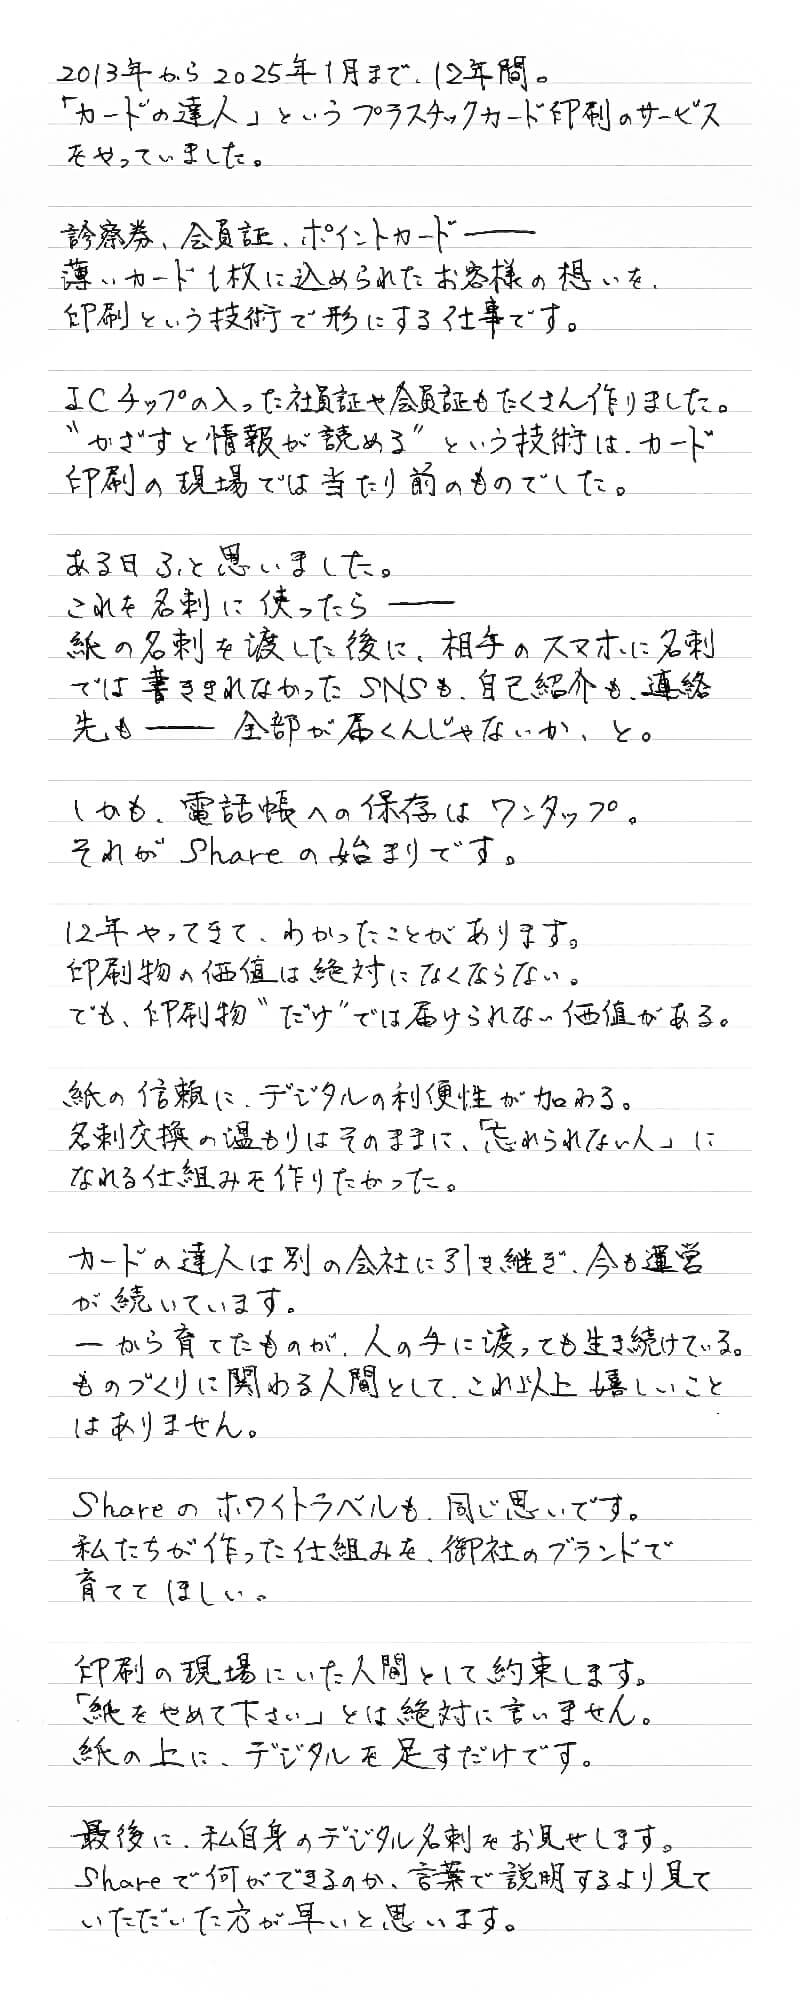 2013年から2025年1月まで、12年間。
「カードの達人」というプラスチックカード印刷のサービス
をやっていました。
診察券、会員証、ポイントカード――
薄いカード1枚に込められたお客様の想いを、
印刷という技術で形にする仕事です。
ICチップの入った社員証や会員証もたくさん作りました。
“かざすと情報が読める”という技術は、カード
印刷の現場では当たり前のものでした。
ある日ふと思いました。
これを名刺に使ったら――
紙の名刺を渡した後に、相手のスマホに名刺
では書ききれなかったSNSも、自己紹介も、連絡
先も――全部が届くんじゃないか、と。
しかも、電話帳への保存はワンタップ。
それがShareの始まりです。
12年やってきて、わかったことがあります。
印刷物の価値は絶対になくならない。
でも、印刷物“だけ”では届けられない価値がある。
紙の信頼に、デジタルの利便性が加わる。
名刺交換の温もりはそのままに、「忘れられない人」に
なれる仕組みを作りたかった。
カードの達人は別の会社に引き継ぎ、今も運営
が続いています。
一から育てたものが、人の手に渡っても生き続けている。
ものづくりに関わる人間として、これ以上嬉しいこと
はありません。
Shareのホワイトラベルも、同じ思いです。
私たちが作った仕組みを、御社のブランドで
育ててほしい。
印刷の現場にいた人間として約束します。
「紙をやめて下さい」とは絶対に言いません。
紙の上に、デジタルを足すだけです。
最後に、私自身のデジタル名刺をお見せします。
Shareで何ができるのか、言葉で説明するより見て
いただいた方が早いと思います。